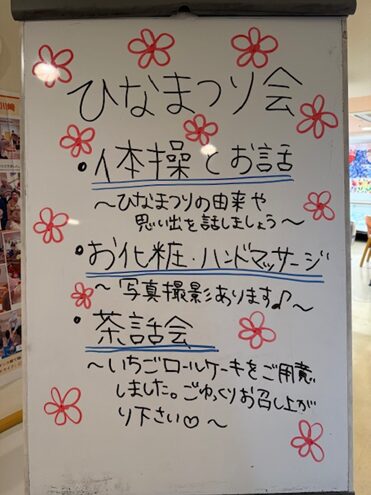 ひなまつり会
・体操とお話
～ひなまつりの由来や
思い出を話しましょう～
・お化粧・ハンドマッサージ
～写真撮影あります♪～
・茶話会
～いちごロールケーキをご用意
しました。ごゆっくりお召し上が
り下さい♡～